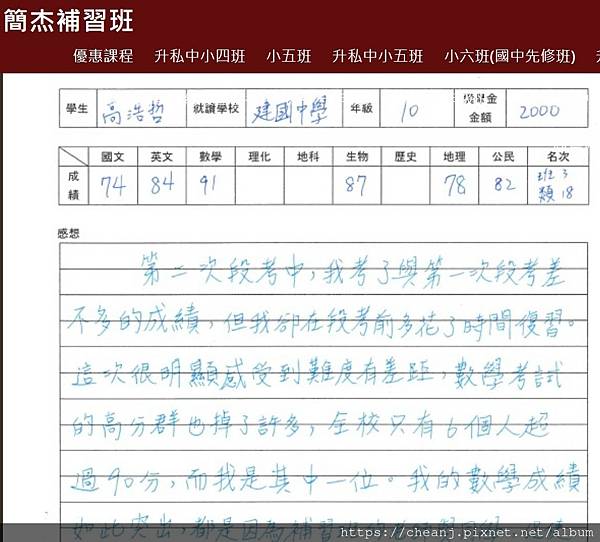 簡杰補習班
優惠課程 升私中小四班 小五班 升私中小五班 小六班(國中先修班)
學生 高浩哲 就讀學校 建國中學 年級 10 獎學金金額 2000
國文 英文 數學 理化 地科 生物 歷史 地理 公民 名次
成績 74 84 91 87 78 82 班3 類18
感想
第二次段考中,我考了與第一次段考差
不多的成績,但我卻在段考前多花了時間復習。
這次很明顯感受到難度有差距,數學考試
的高分群也掉了許多,全校只有6個人超
過90分,而我是其中一位。我的數學成績
如此突出,都是因為補習
https://cheanj.pixnet.net/album